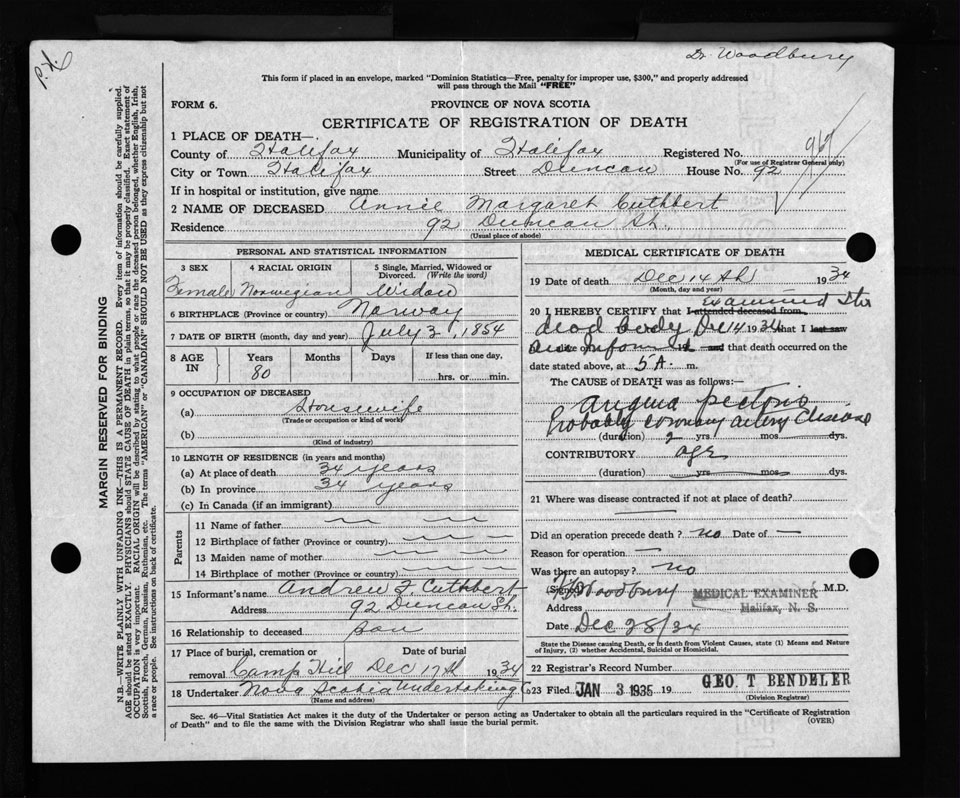 P.X.
Dr Woodbury
This form if placed in an envelope, marked "Dominion Statistics—Free, penalty for improper use, $300," and properly addressed
will pass through the Mail "FREE"
FORM 6.
PROVINCE OF NOVA SCOTIA
CERTIFICATE OF REGISTRATION OF DEATH
1 PLACE OF DEATH—.
County of Halifax Municipality of Halifax Registered No.
(For use of Registrar General only)
City or Town Halifax Street Duncan House No. 92
If in hospital or institution, give name
2 NAME OF DECEASED Annie Margaret Cuthbert
Residence 92 Duncan St.,
(Usual place of abode)
PERSONAL AND STATISTICAL INFORMATION
3 SEX 4 RACIAL ORIGIN 5 Single, Married, Widowed or Divorced. (Write the word)
Female Norwegian Widow
6 BIRTHPLACE (Province or country) Norway
7 DATE OF BIRTH (month, day and year) July 3, 1854
8 AGE IN Years Months Days If less than one day,
80 hrs. or min.
9 OCCUPATION OF DECEASED
(a) Housewife
(Trade or occupation or kind of work)
(b)
(Kind of industry)
10 LENGTH OF RESIDENCE (in years and months)
(a) At place of death 34 years
(b) In province 34 years
(c) In Canada (if an immigrant)
Parents
11 Name of father
12 Birthplace of father (Province or country)
13 Maiden name of mother
14 Birthplace of mother (Province or country)
15 Informant's name Andrew F. Cuthbert
Address 92 Duncan St.
16 Relationship to deceased Son
17 Place of burial, cremation or Date of burial
removal Camp Hill Dec 17th 1934
18 Undertaker Nova Scotia Undertaking Co
(Name and address)
MEDICAL CERTIFICATE OF DEATH
19 Date of death Dec 14th 1934
(Month, day and year)
20 I HEREBY CERTIFY that I attended deceased from examined this
dead body Dec 14 1934 that I last saw
and that death occurred on the
date stated above, at 5 A. m.
The CAUSE of DEATH was as follows:—
Angina pectoris
Probably coronary artery disease
(duration) 2 yrs. mos. dys.
CONTRIBUTORY age
(duration) yrs. mos. dys.
21 Where was disease contracted if not at place of death?
Did an operation precede death? no Date of —
Reason for operation —
Was there an autopsy? no
(Signed) Woodbury MEDICAL EXAMINER M.D.
Address Halifax, N. S.
Date Dec 28/34
State the Disease causing Death, or in death from Violent Causes, state (1) Means and Nature
of Injury, (2) whether Accidental, Suicidal or Homicidal.
22 Registrar's Record Number
23 Filed JAN 3 1935 19 GEO. T BENDELER
(Division Registrar)
Sec. 46—Vital Statistics Act makes it the duty of the Undertaker or person acting as Undertaker to obtain all the particulars required in the "Certificate of Registration
of Death" and to file the same with the Division Registrar who shall issue the burial permit.
(OVER)
MARGIN RESERVED FOR BINDING
N.B.—WRITE PLAINLY WITH UNFADING INK—THIS IS A PERMANENT RECORD. Every item of information should be carefully supplied.
AGE should be stated EXACTLY. PHYSICIANS should STATE CAUSE OF DEATH in plain terms, so that it may be properly classified. Exact statement of
OCCUPATION is very important. RACIAL ORIGIN will be described by stating to what people or race the deceased person belonged, whether English, Irish,
Scottish, French, German, Russian, Ruthenian, etc. The terms "AMERICAN" or "CANADIAN" SHOULD NOT BE USED as they express citizenship but not
a race or people. See instructions on back of certificate.